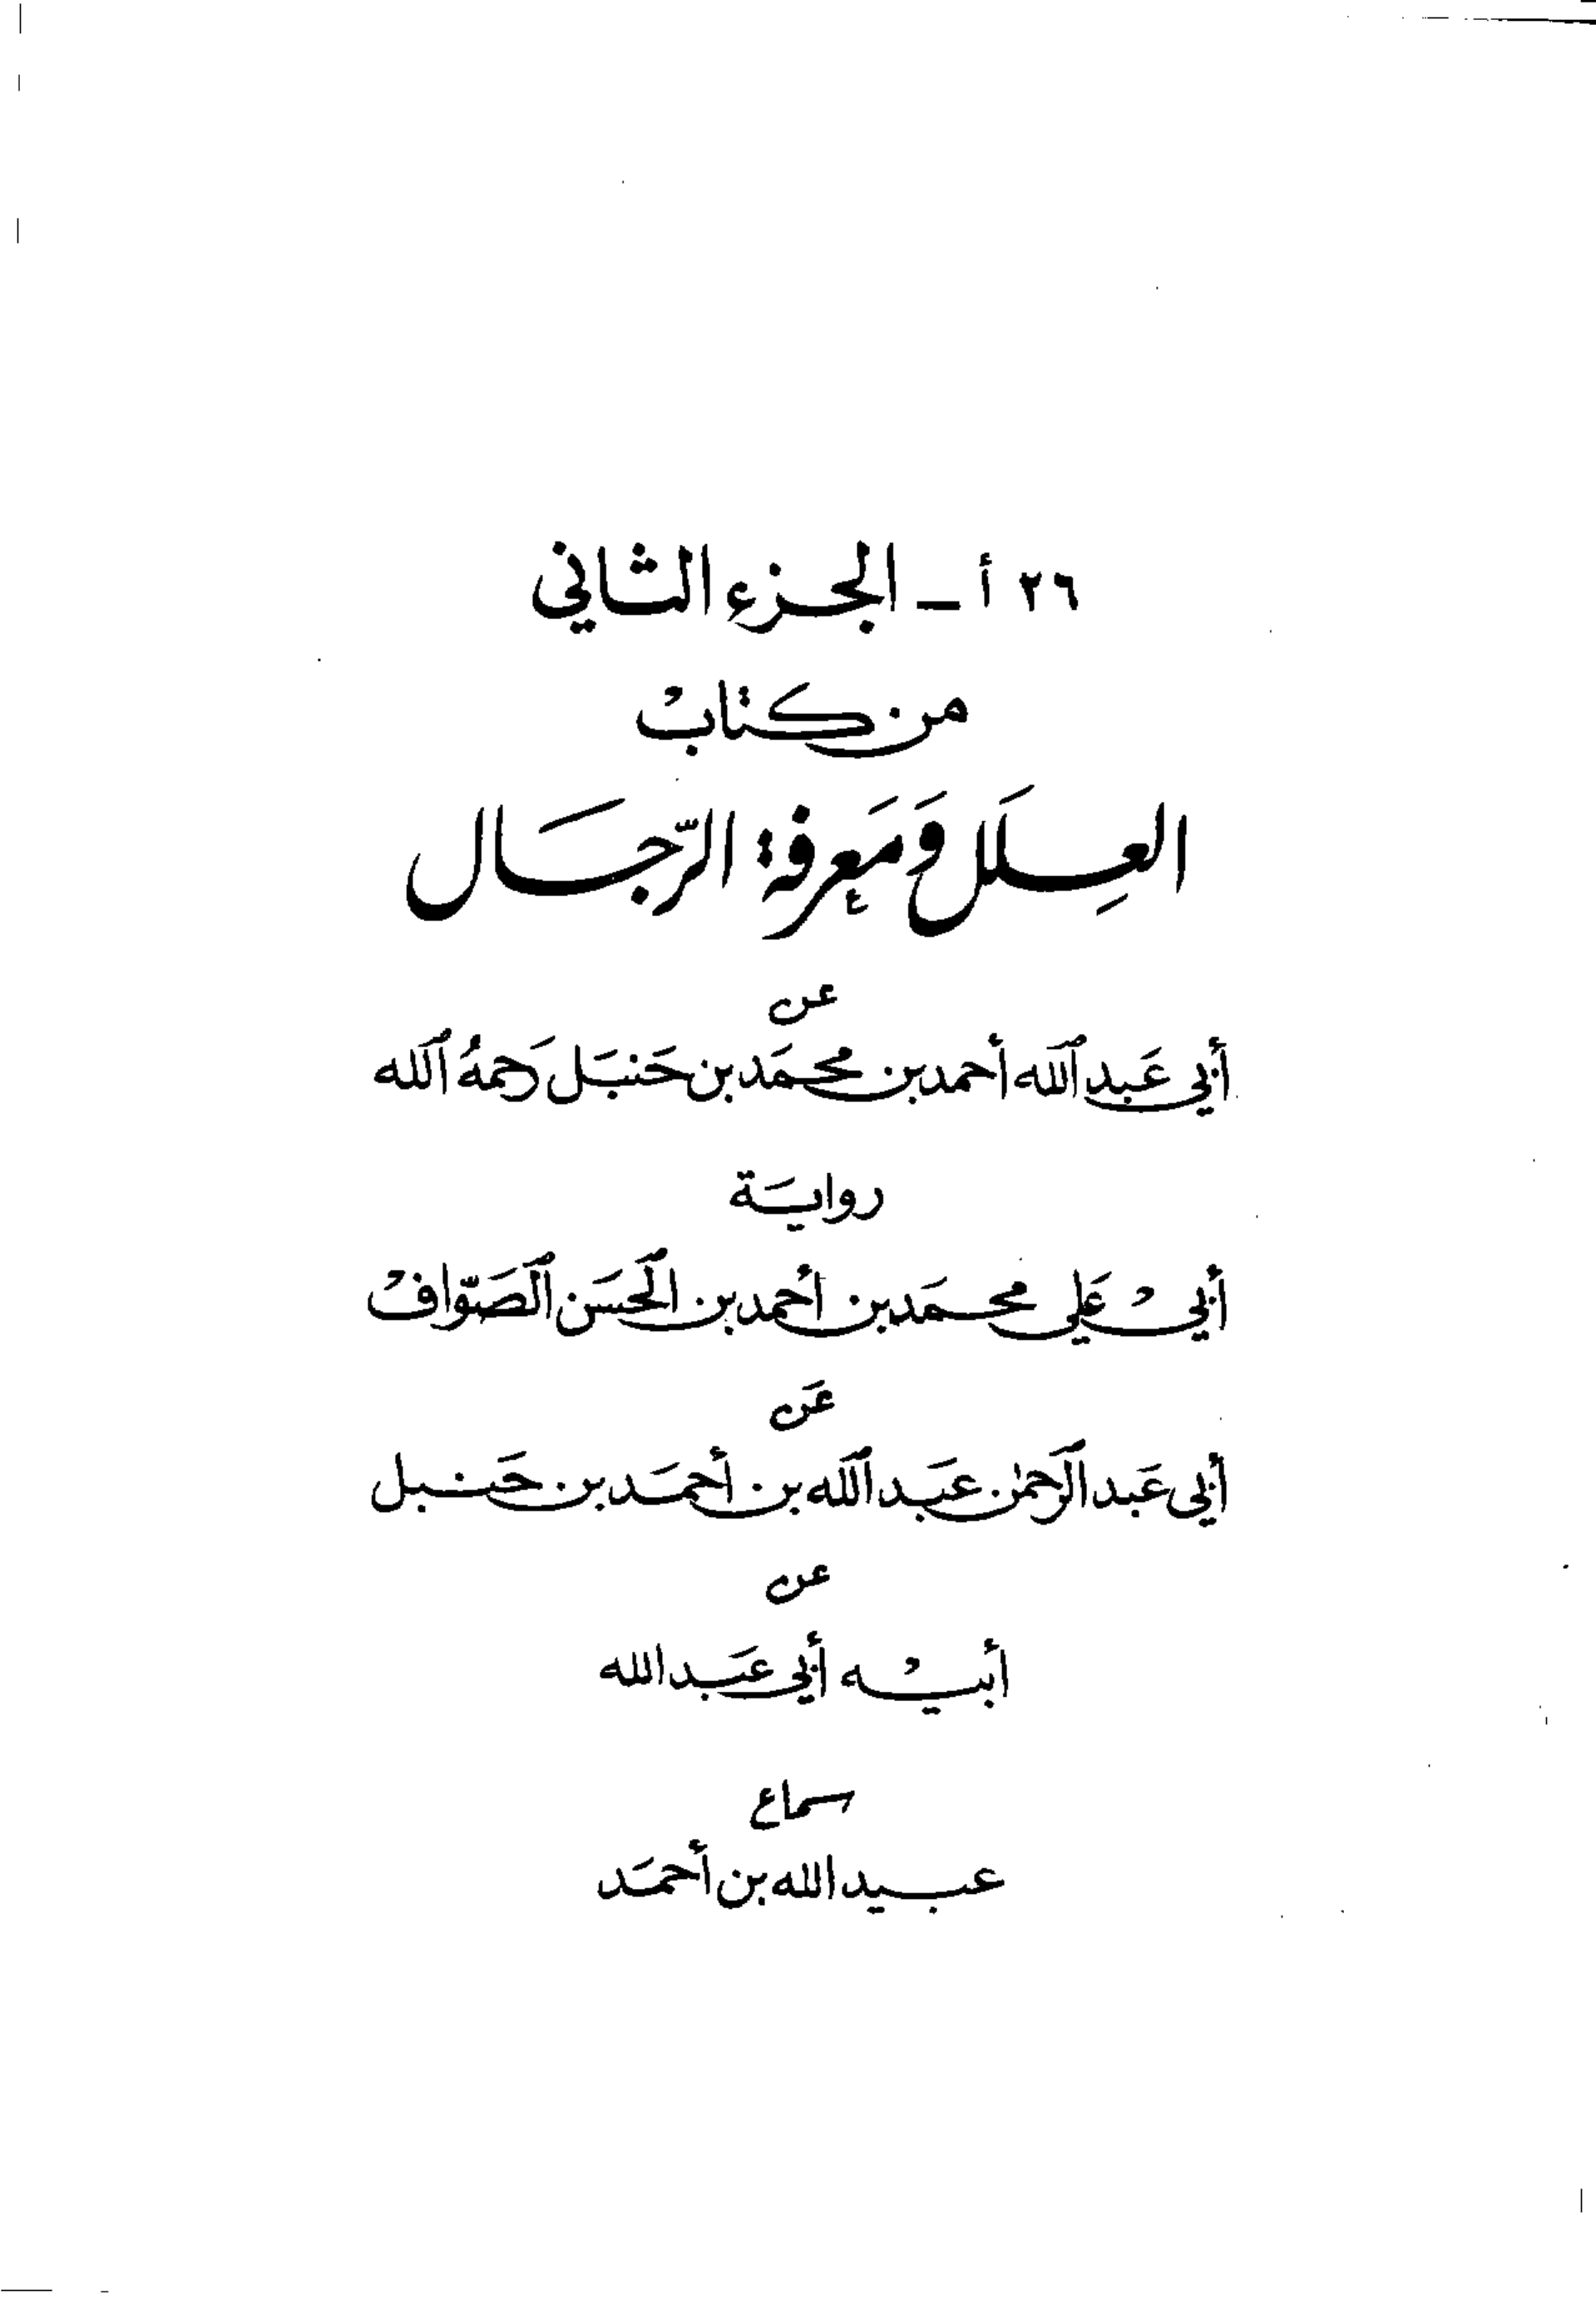 ٢٦ أ ــ الجزء الثاني
من كتاب
العِلَل وَمَعرِفة الرّجَال
عن
أبي عَبد الله أحمد بن محمَّد بن حَنبَل رَحمهُ الله
روايَة
أبيْ عَلي محمَّد بن أحْمد بن الحسَن الصَوّافْ
عَن
أبي عَبد الرحمٰن عبَد الله بن أحمَد بن حَنبل
عن
أبيْه أبي عبَد الله
سماع
عبيد الله بن أحمَد